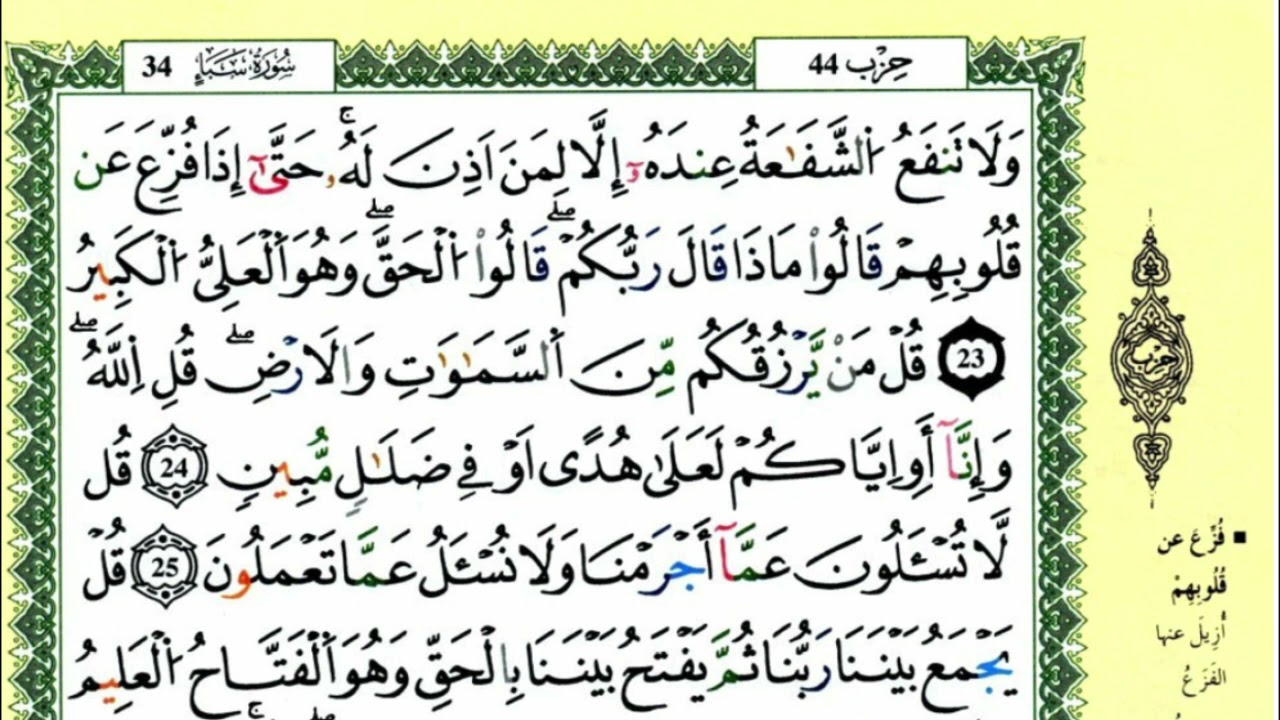 حِزْب 44
سُورَةُ سَبَإٍ 34
وَلَا تَنفَعُ اُ۬لشَّفَٰعَةُ عِندَهُۥٓ إِلَّا لِمَنَ اَذِنَ لَهُۥۚ حَتَّىٰٓ إِذَا فُزِّعَ عَن
قُلُوبِهِمْ قَالُواْ مَاذَا قَالَ رَبُّكُمْۖ قَالُواْ اُ۬لْحَقَّۖ وَهُوَ اَ۬لْعَلِىُّ اُ۬لْكَبِيرُ
23 قُلْ مَنْ يَّرْزُقُكُم مِّنَ اَ۬لسَّمَٰوَٰتِ وَالَارْضِۖ قُلِ اِ۬للَّهُۖ
وَإِنَّآ أَوِ اِيَّاكُمْ لَعَلَىٰ هُدًى اَوْ فِي ضَلَٰلٍ مُّبِينٍ 24 قُل
لَّا تُسْـَٔلُونَ عَمَّآ أَجْرَمْنَا وَلَا نُسْـَٔلُ عَمَّا تَعْمَلُونَ 25 قُلْ
يَجْمَعُ بَيْنَنَا رَبُّنَا ثُمَّ يَفْتَحُ بَيْنَنَا بِالْحَقِّ وَهُوَ اَ۬لْفَتَّاحُ اُ۬لْعَلِيمُ
حِزْب
فُزِّعَ عن
قُلُوبِهِمْ
أُزِيلَ عنها
الفَزَعُ